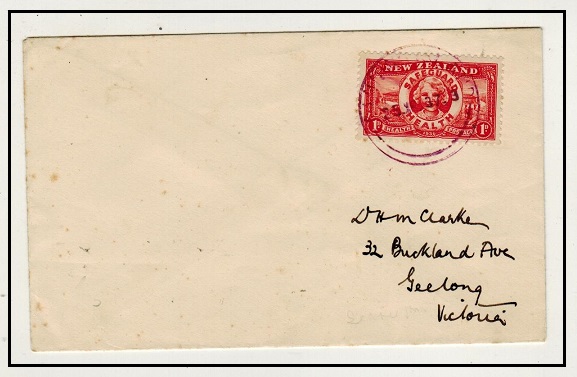 NEW ZEALAND
SAFEGUARD
HEALTH
1D HEALTH 1D
Dr H M Clarke
32 Buckland Ave
Geelong
Victoria